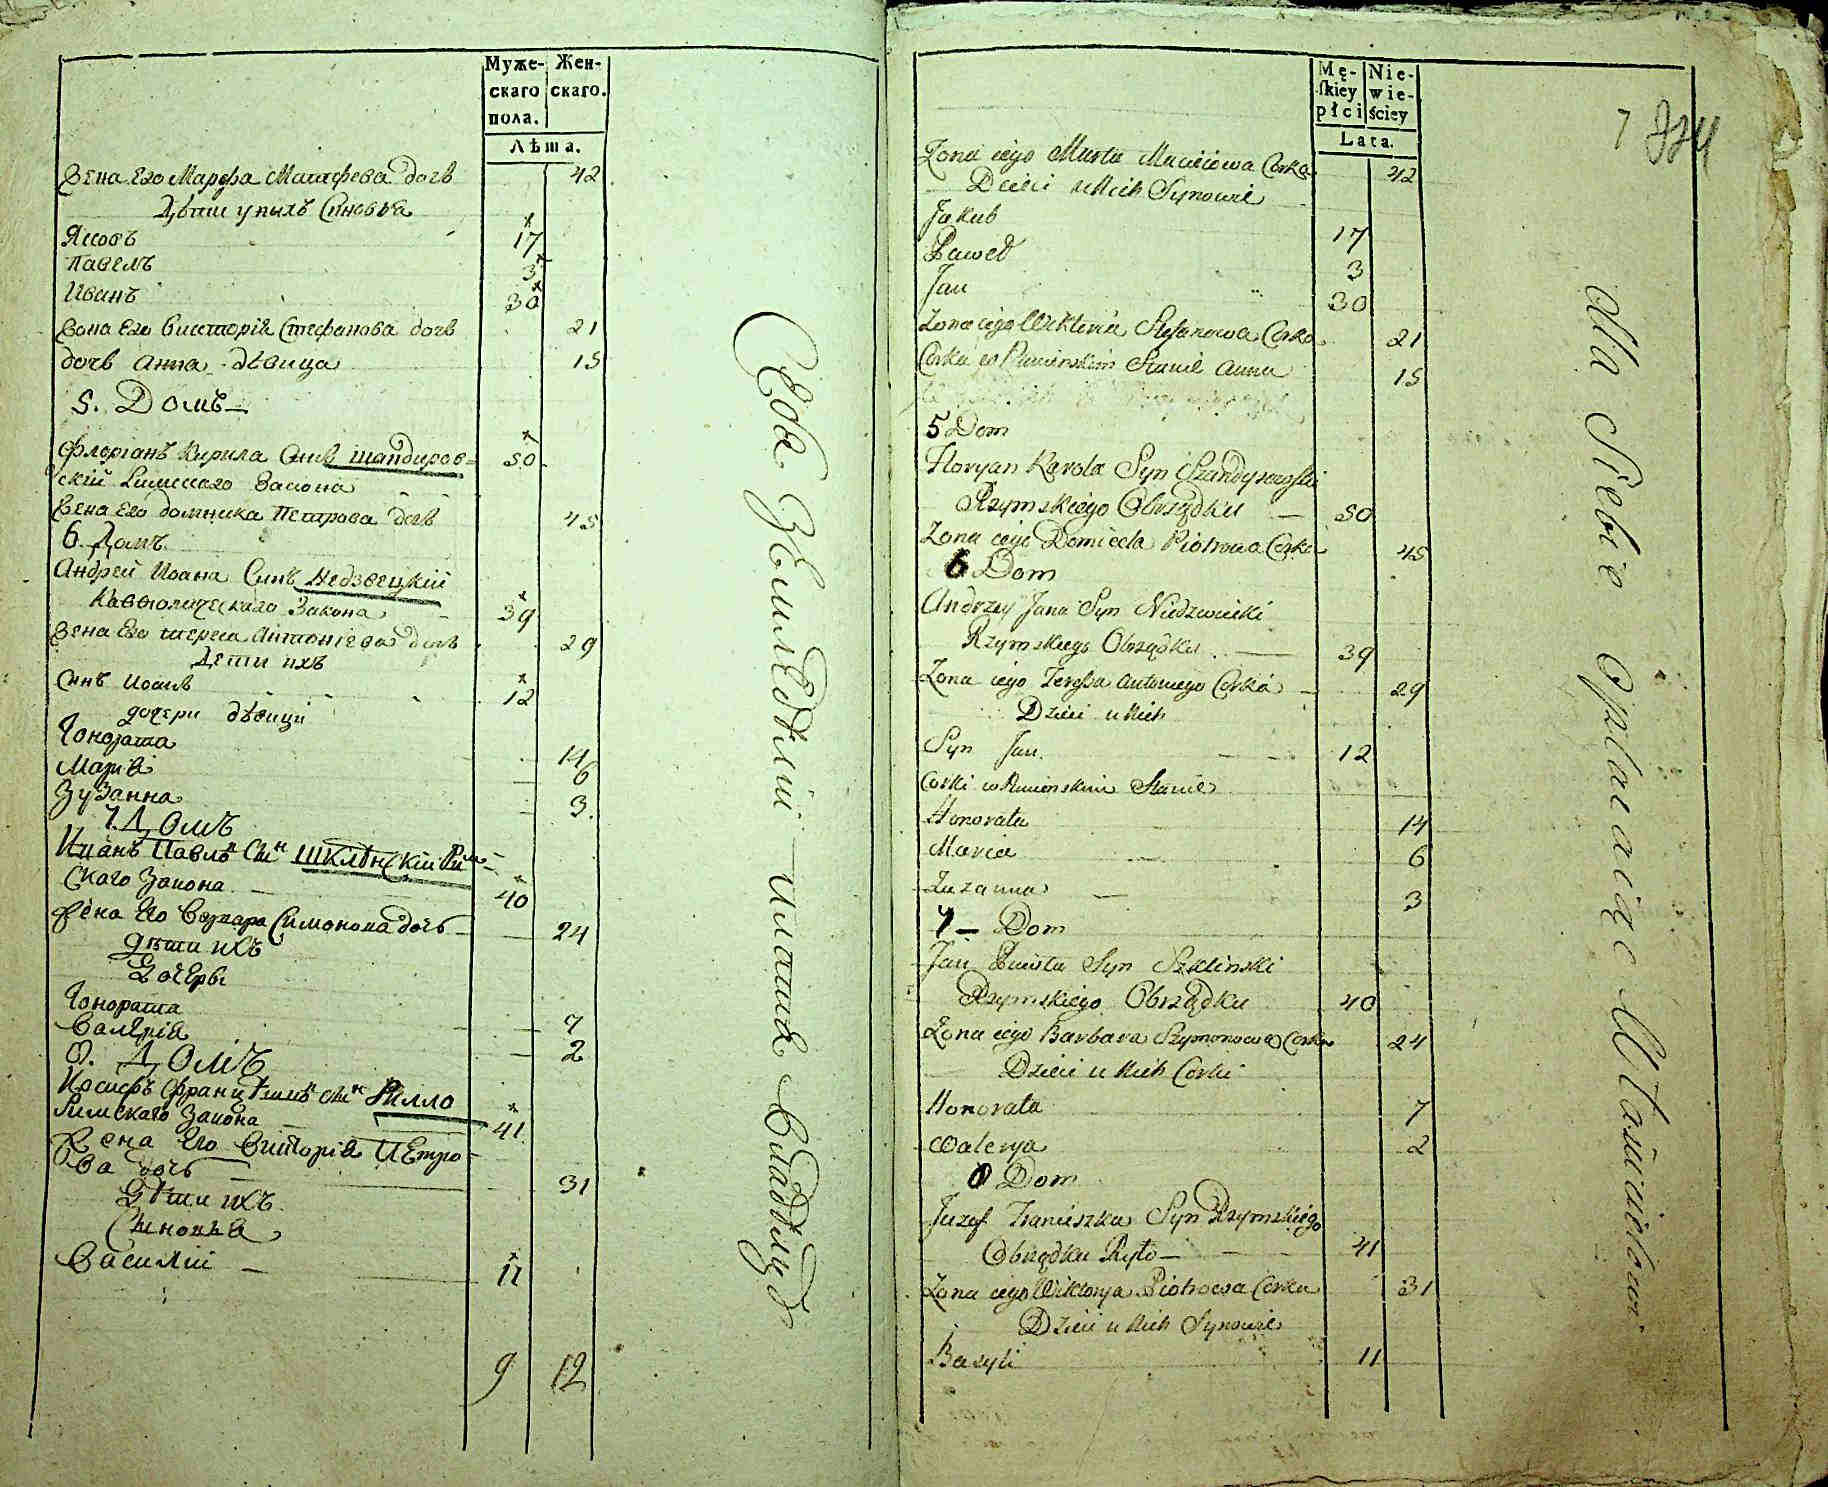 Муже-
скаго
пола.
Жен-
скаго.
Лѣта.
Жена Его Марфа Матфева дочь 42
Дѣти у ныхъ Синовья
Якобъ 17
Павелъ 3
Иванъ 30
Жона Его Викторія Стефанова дочь 21
дочь Анна дѣвица 15
5. Домъ
Флоріанъ Кирила Синъ Шандиров-
скій Римскаго Закона 50
Жена Его домника Петрова дочь 45
6. Домъ
Андрей Иоана Синъ Недзвецкій
Каѳтолическаго Закона 39
Жена Его тереса Антонієва дочь 29
Дети ихъ
Синъ Иоанъ 12
дочери дѣвици
Гонората 14
Марія 6
Зузанна 3.
7. Домъ
Иванъ Павлов Син Шклѣнскій Рим-
скаго Закона 40
Жена Его Варвара Симонова дочь 24
дѣти ихъ
Дочеры
Гонората 7
Валерія 2
8. Домъ
Иосифъ Францѣшковъ син Рилло
Римскаго Закона 41
Жена Его Викторія Петро-
ва дочь 31
Дѣти ихъ
Синовья
Василій 11
9 12
Себѣ Землѣдѣлій платя Владѣлцу
Mę-
skiey
płci
Nie-
wie-
ściey
Lata.
7 924
Zona iego Marta Macieiowa Corka 42
Dzieci u Nich Synowie
Jakub 17
Paweł 3
Jan 30
Zona iego Wiktoria Stefanowa Corka 21
Corka w Panienskim Stanie Anna 15
5 Dom
Floryan Karola Syn Szandyrowski
Rzymskiego Obrządku 50
Zona iego Domicela Piotrowa Corka 45
6 Dom
Andrzey Jana Syn Niedzwiecki
Rzymskiego Obrządku 39
Zona iego Teressa Antoniego Corka 29
Dzieci u Nich
Syn Jan 12
Corki w Panienskim Stanie
Honorata 14
Maria 6
Zuzanna 3
7 Dom
Jan Pawła Syn Szklinski
Rzymskiego Obrządku 40
Zona iego Barbara Szymonowa Corka 24
Dzieci u Nich Corki
Honorata 7
Walerya 2
8 Dom
Juzef Franciszka Syn Rzymskiego
Obrządku Ryło 41
Zona iego Wiktorya Piotrowa Corka 31
Dzieci u Nich Synowie
Bazyli 11
dla Siebie Opłacaiąc